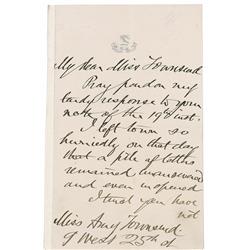 My dear Miss Townsend
Pray pardon my
tardy response to your
note of the 19th inst.
I left town so
hurriedly on that day
that a pile of letters
remained unanswered
and even unopened
I trust you have
not
Miss Amy Townsend
9 West 25th St